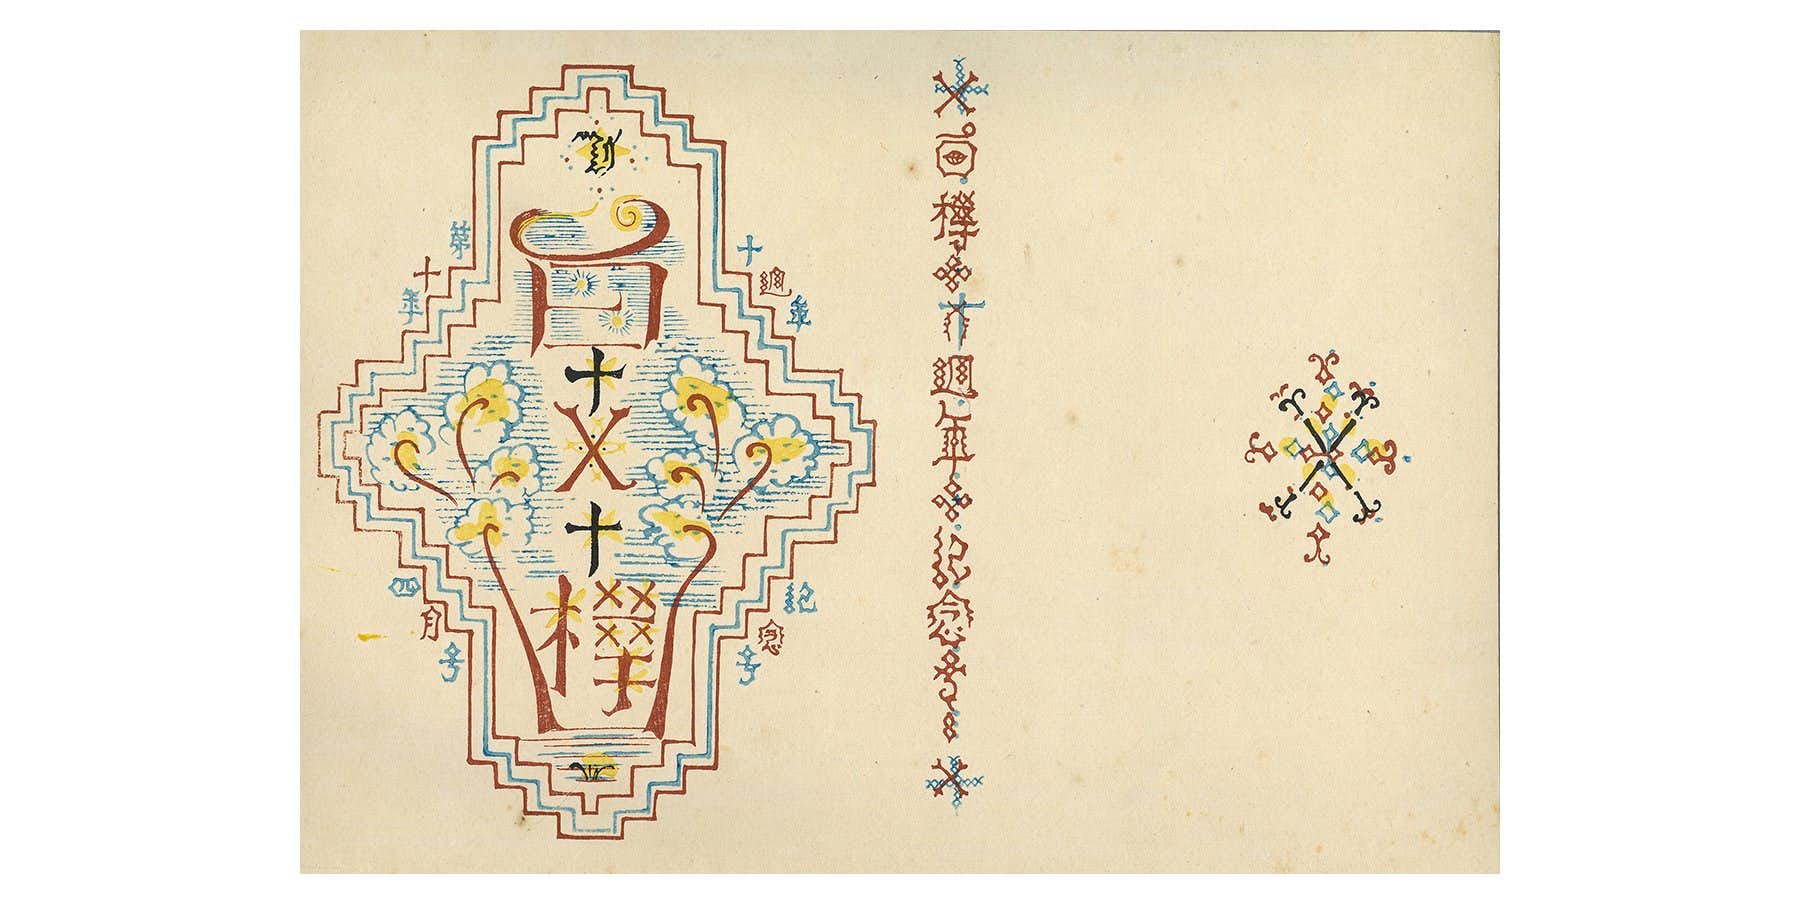 白
十
X
十
樺
十週年
記念号
第十年
四月号
白樺十週年記念号